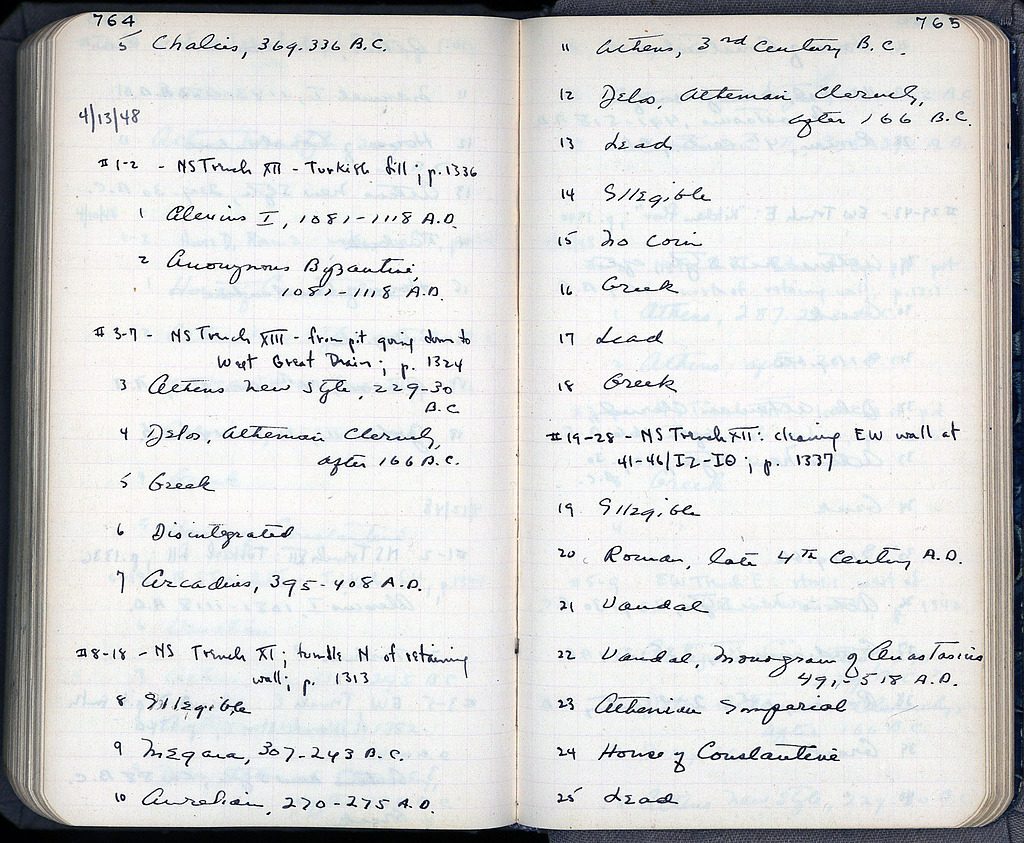 764
5 Chalcis, 369-336 B.C.
4/13/48
#1-2 - NS Trench XII - Turkish fill; p. 1336
1 Alexius I, 1081-1118 A.D.
2 Anonymous Byzantine,
1081-1118 A.D.
#3-7 - NS Trench XIII - from pit going down to
West Great Drain; p. 1324
3 Athens New Style, 229-30
B.C.
4 Delos, Athenian Cleruchy,
after 166 B.C.
5 Greek
6 Disintegrated
7 Arcadius, 395-408 A.D.
#8-18 - NS Trench XI; tumble N of retaining
wall; p. 1313
8 Illegible
9 Megara, 307-243 B.C.
10 Aurelian, 270-275 A.D.
765
11 Athens, 3rd Century B.C.
12 Delos, Athenian Cleruchy,
after 166 B.C.
13 Lead
14 Illegible
15 No coin
16 Greek
17 Lead
18 Greek
#19-28 - NS Trench XII: cleaning EW wall at
41-46/IZ-IΘ; p. 1337
19 Illegible
20 Roman, late 4th Century A.D.
21 Vandal
22 Vandal, Monogram of Anastasius
491-518 A.D.
23 Athenian Imperial
24 House of Constantine
25 Lead